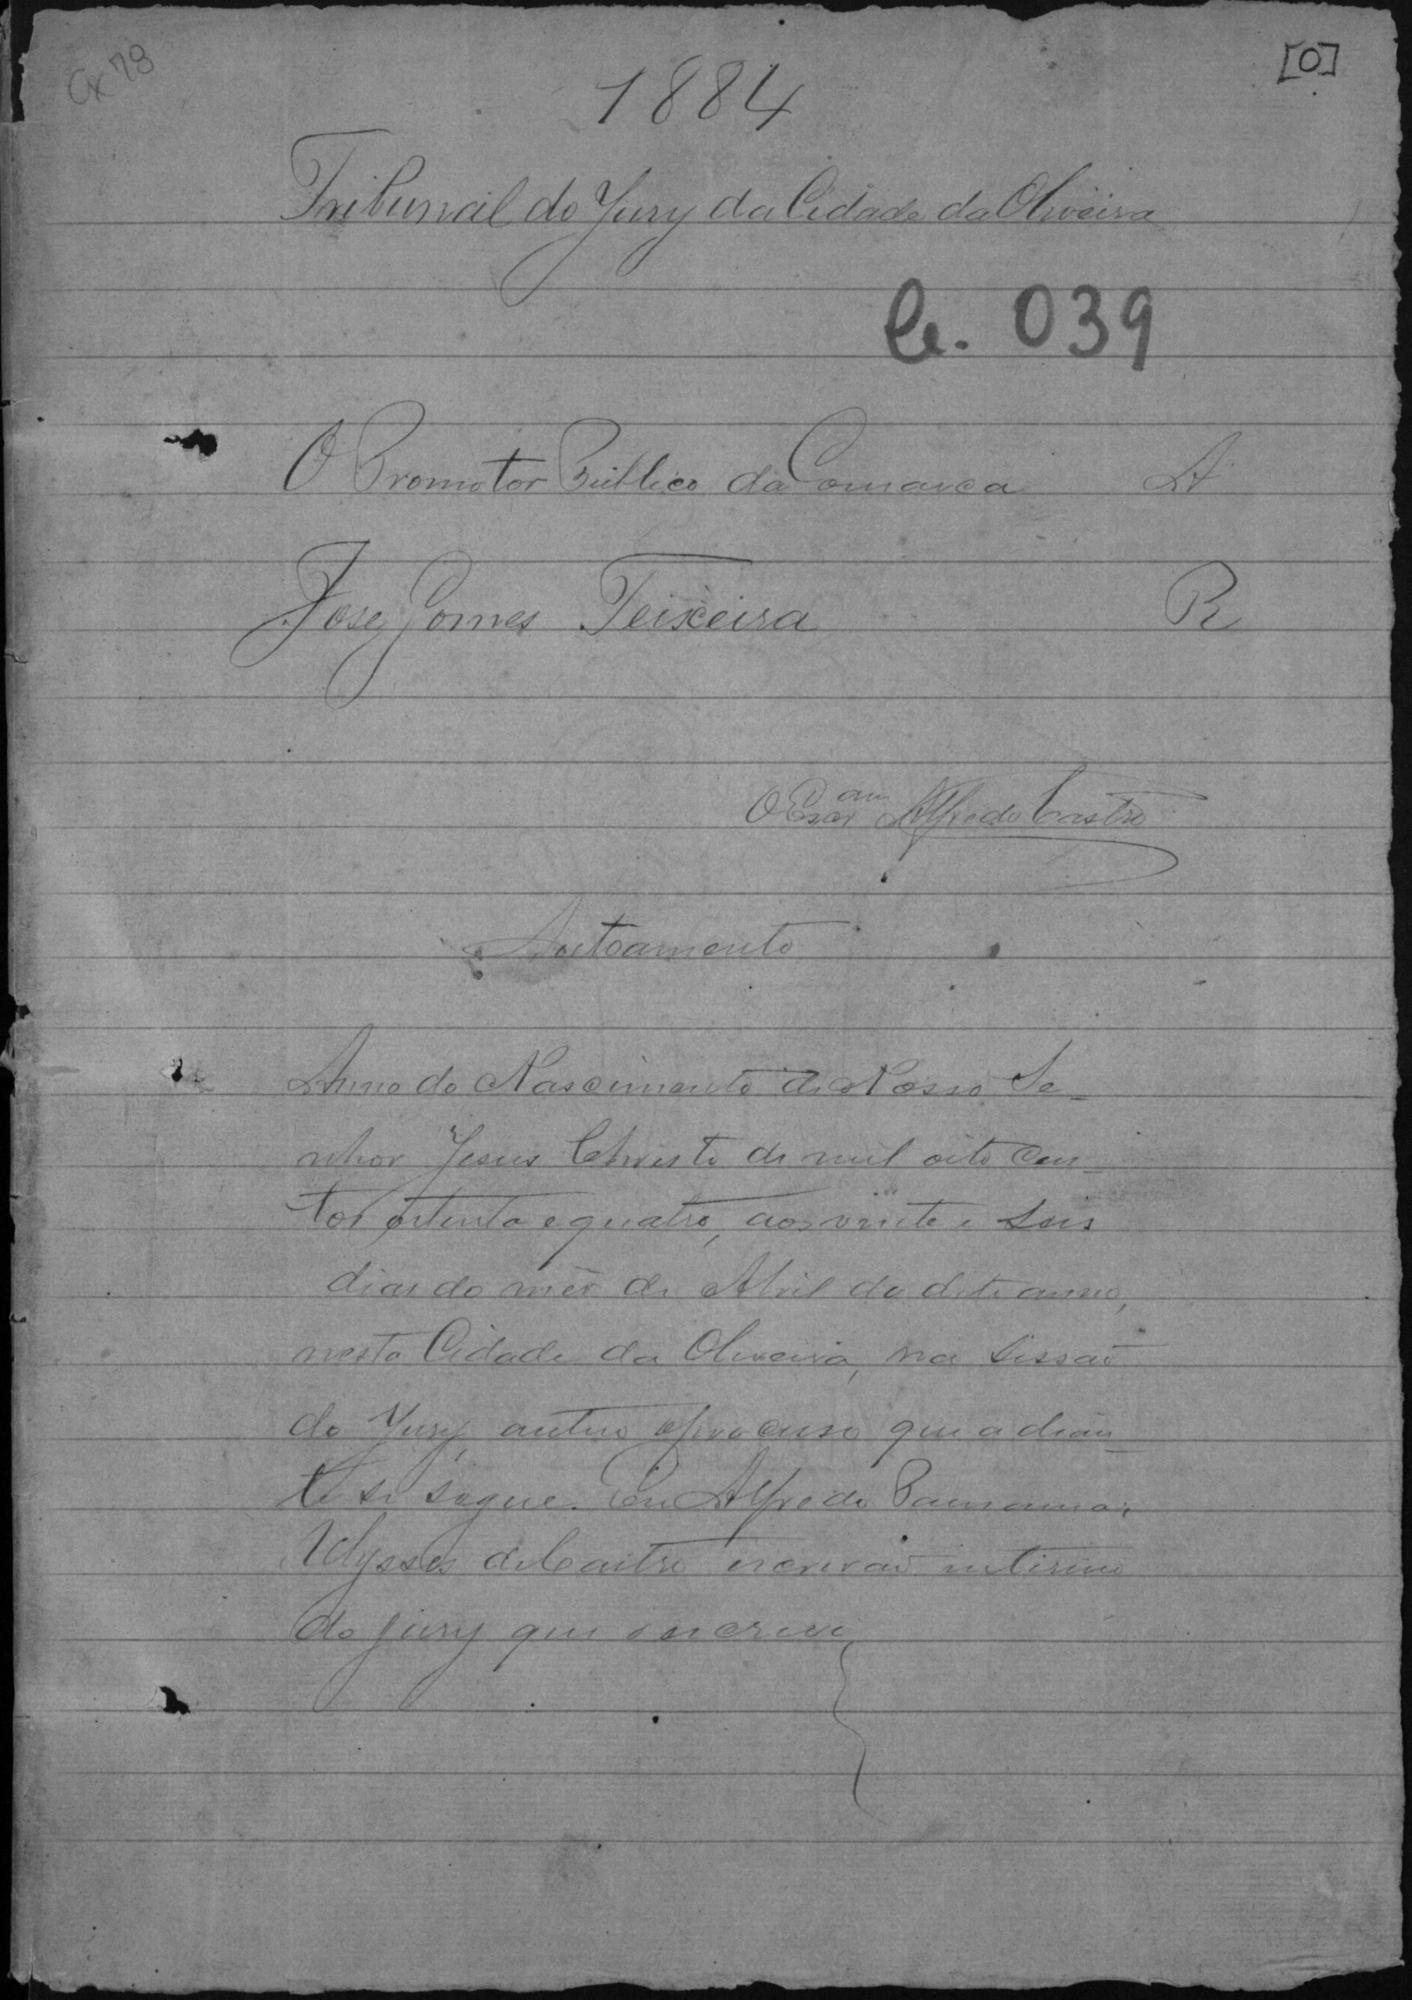 Cx 78
[0]
1884
Tribunal do Jury da Cidade da Oliveira
Cr. 039
O Promotor Publico da Comarca A
Jose Gomes Teixeira R
O Escr am Alfredo Castro
Autoamento
Anno do Nascimento de Nosso Se-
nhor Jesus Christo de mil oito cen-
tos oitenta e quatro, aos vinte e seis
dias do mês de Abril do dito anno,
nesta Cidade da Oliveira, na sessão
do Jury, autuo o processo que adian-
te se segue. Eu Alfredo
Ulysses de Castro escrivão interino
do jury que o escrevi